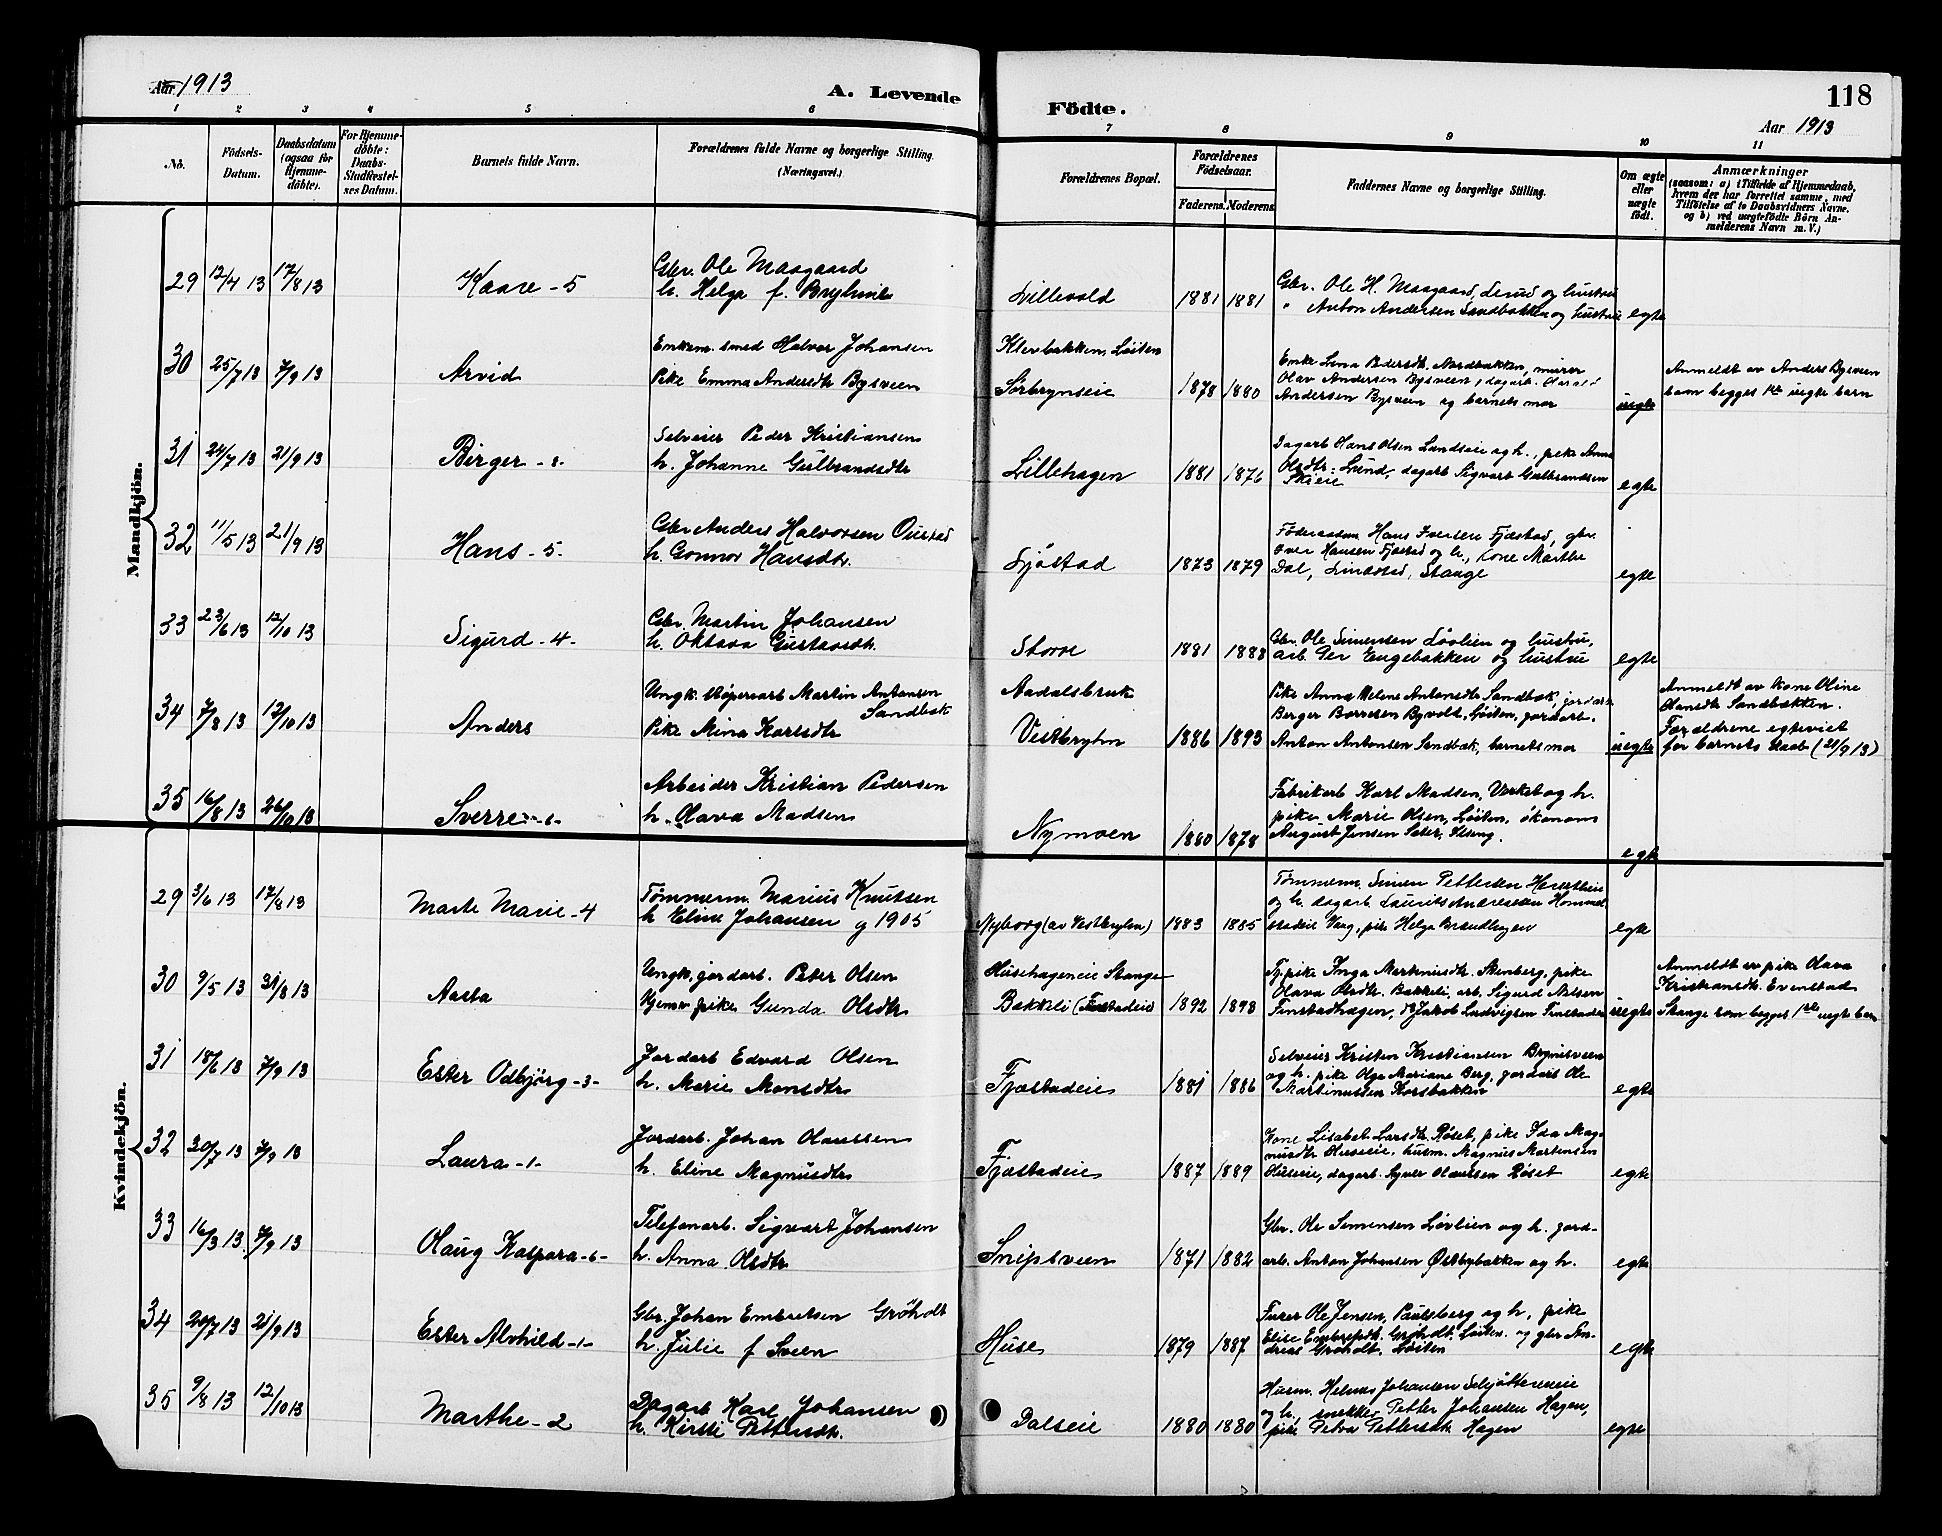 Aar 1913
A. Levende
Födte.
118
Aar 1913
1 2 3 4 5 6 7 8 9 10 11
No.
Födsels-
Datum.
Daabsdatum
(ogsaa for
Hjemme-
döbte).
For Hjemme-
döbte:
Daabs-
Stadfæstel-
ses Datum.
Barnets fulde Navn.
Forældrenes fulde Navne og borgerlige Stilling.
(Næringsvei.)
Forældrenes Bopæl.
Forældrenes
Födselsaar.
Faderens. Moderens.
Faddernes Navne og borgerlige Stilling.
Om ægte
eller
uægte
födt.
Anmærkninger
(saasom: a) i Tilfælde af Hjemmedaab,
hvem der har forrettet samme, med
Tilföielse af to Daabsvidners Navne.
og b) ved uægtefödte Börn An-
melderens Navn m. V.)
Mandkjön.
29 12/4 13 17/8 13 Kaare - 5
Gbr. Ole Maagaard
h. Helga f. Bryhni
Lillevold 1881 1881
Gbr. Ole H. Maagaard, Lerud og hustru
" Anton Andersen Sandbakken og hustru
egte
30 25/7 13 7/9 13 Arvid
Enkem. smed Halvor Johansen
Pike Emma Andersdtr Bysveen
Klevbakken, Löiten
Sörbrynseie 1878 1880
Enke Lina Pedersdtr. Nordbakken, murer
Olav Andersen Bysveen, dagarb. Harald
Andersen Bysveen og barnets mor
uegte
Anmeldt av Anders Bysveen
som begges 1ste uegte barn
31 24/7 13 21/9 13 Birger - 8 -
Selveier Peder Kristiansen
h. Johanne Gulbrandsdtr
Lillehagen 1881 1876
Dagarb Hans Olsen Lundseie og h., pike Anne
Olsdtr. Lund, dagarb Sigvart Gulbrandsen
Skieie
egte
32 11/5 13 21/9 13 Hans - 5 -
Gbr Anders Halvorsen Ousted
h. Gonnor Hansdtr.
Ljöstad 1873 1879
Föderaadsm Hans Iversen Fjæstad, gbr.
Iver Hansen Fjæstad og h., kone Marthe
Dal, Lindstad, Stange
egte
33 23/6 13 12/10 13 Sigurd - 4 -
Gbr. Martin Johansen
h. Oktava Gustavsdtr.
Storre 1881 1883
Gbr. Ole Simensen Lövlien og hustru,
arb. Per Engebakken og hustru
egte
34 7/8 13 12/10 13 Anders
Ungk. støperiarb Martin Antonsen
Sandbæk
Pike Mina Karlsdtr
Aadalsbruk
Vestbryhn 1886 1893
Pike Anna Helene Antonsdtr Sandbæk, jordarb.
Berger Børresen Byvolt, Løiten, jordarb.
Anton Antonsen Sandbæk, barnets mor
uegte
Anmeldt av kone Oline
Olansdtr Sandbækken.
Forældrene egteviet
før barnets daab (21/9 13)
35 16/8 13 26/10 13 Sverre - 6 -
Arbeider Kristian Pedersen
h. Olava Madsen
Nymoen 1880 1878
Fabrikarb Karl Madsen, Verket og h.
pike Marie Olsen, Løiten, økonom
August Jensen Sæter, Elseng.
egte
Kvindekjön.
29 3/6 13 17/8 13 Marte Marie - 4
Tømmerm. Marius Knutsen
h Eline Johansen g 1905
Nyborg (av Vestbryhn) 1883 1885
Tømmerm. Simen Pettersen
og h. dagarb Laurits Andreassen Hommel
stadeie Vang, pike Helga Brændhagen
egte
30 9/5 13 31/8 13 Aasta
Ungk. jordarb. Peter Olsen
Hjemv. pike Gunda Olsdtr
Husehageneie Stange
Bækkeli (Finstadeie) 1892 1893
Tj.pike Inga Markmusdtr. Stenberg, pike
Olava Olsdtr. Bakkeli, arb. Sigurd Nilsen
Finstadhagen, Jakob Ludvigsen Finstadeie
uegte
Anmeldt av pike Olava
Kristiansdtr. Evenstad
Stange som begges 1ste uegte barn
31 18/6 13 7/9 13 Ester Odbjørg - 3 -
Jordarb Edvard Olsen
h. Marie Monsdtr
Fjæstadeie 1881 1886
Selveier Kristen Kristiansen Brynisveen
og h. pike Olga Mariane Berg, jordarb Ole
Martinussen Korsbakken
egte
32 20/7 13 7/9 13 Laura - 1 -
Jordarb. Johan Olaussen
h. Eline Magnusdtr
Fjæstadeie 1887 1889
Kone Lisabet Larsdtr. Røset, pike Ida Mag-
nusdtr Huseeie, husm. Magnus Martinsen
Huseeie, dagarb. Agner Olaussen Røset
egte
33 16/3 13 7/9 13 Olaug Kaspara - 6 -
Telefonarb. Sigvart Johansen
h. Anna Olsdtr
Snipsveen 1871 1882
Gbr. Ole Simensen Løvlien og h. jord-
arb. Anton Johansen Østbybakken og h.
egte
34 20/7 13 21/9 13 Ester Alvhild - 1 -
Gbr. Johan Embretsen Gröholt
h. Julie f Sveen
Huse 1879 1887
Furer Ole Jensen, Paulsberg og h, pike
Elise Embretsdtr. Gröholdt, Löiten. og gbr An-
dreas Gröholt, Löiten
egte
35 9/8 13 12/10 13 Marthe - 2
Dagarb Karl Johansen
h. Kirsti Pettersdtr.
Dalseie 1880 1880
Husm. Helmer Johansen
og h, snekker Petter Johansen Hagen,
pike Petra Pettersdtr Hagen
egte